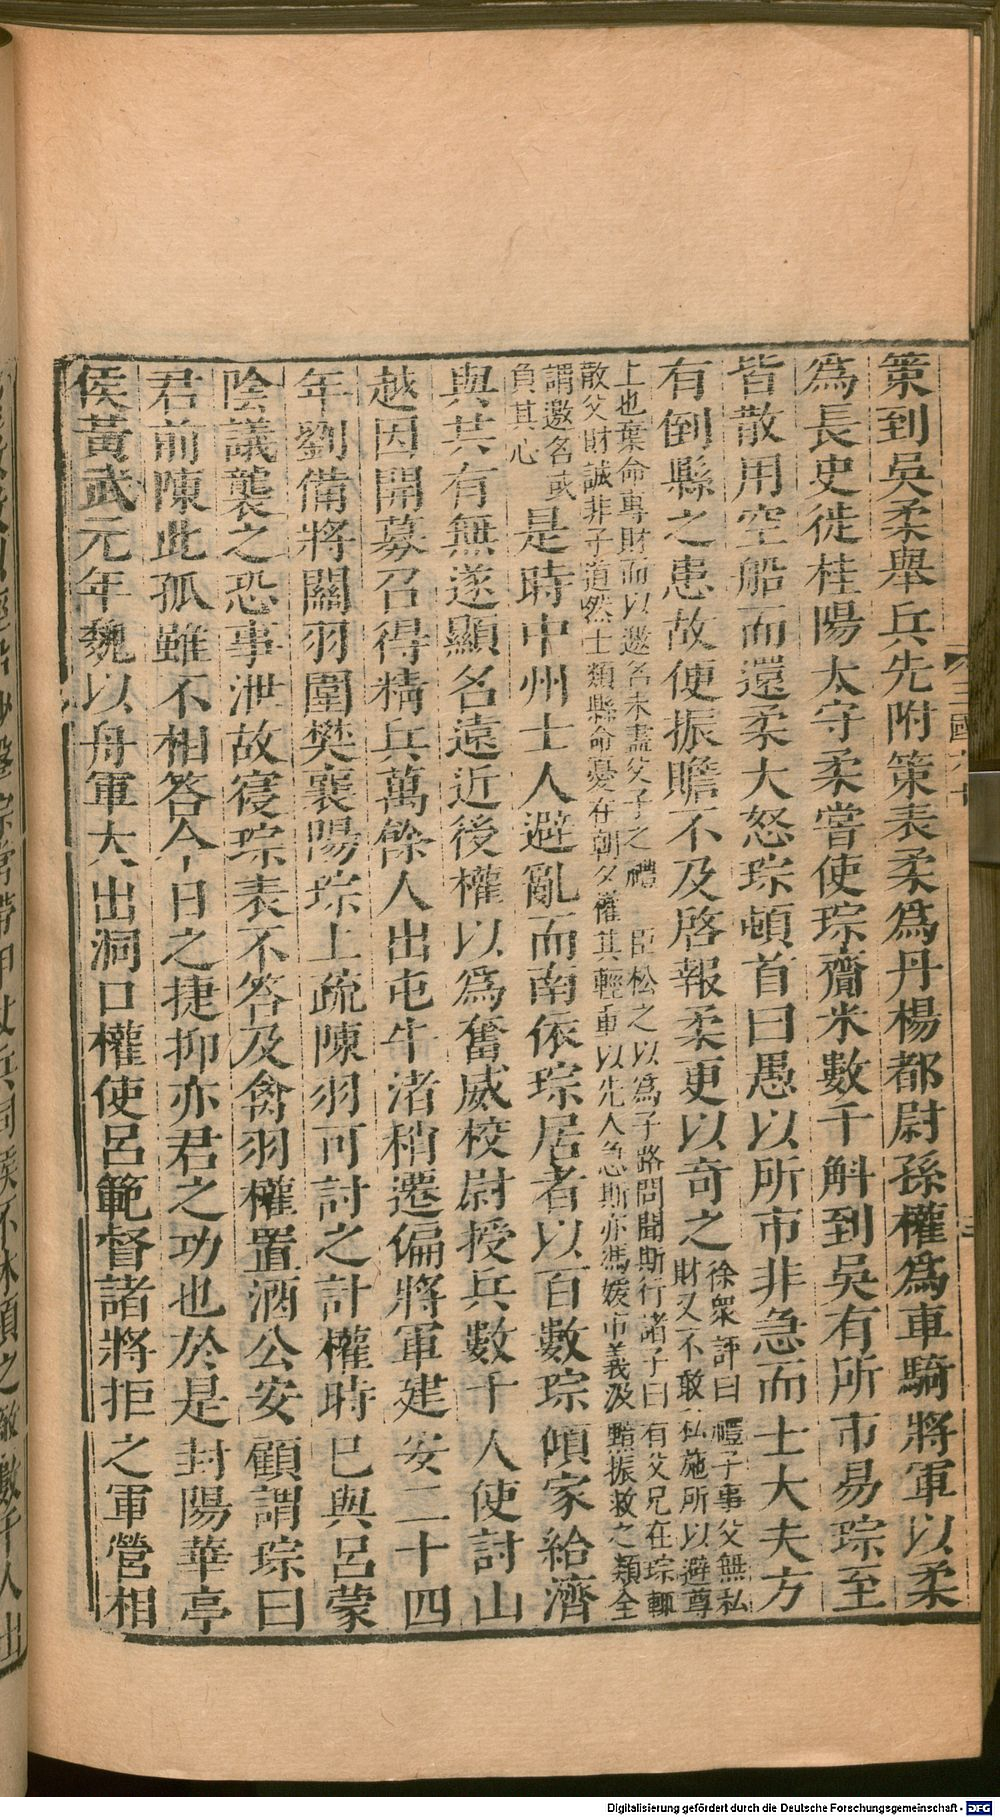 策到吳柔舉兵先附策表柔爲丹楊都尉孫權爲車騎將軍以柔
爲長史徙桂陽太守柔嘗使琮齎米數千斛到吳有所市易琮至
皆散用空船而還柔大怒琮頓首曰愚以所市非急而士大夫方
有倒縣之患故便振贍不及啓報柔更以奇之
徐衆評曰禮子事父無私
財又不敢私施所以避尊
上也棄命專財而以邀名未盡父子之禮 臣松之以爲子路問聞斯行諸子曰有父兄在琮輒
散父財誠非子道然士類縣命憂在朝夕權其輕重以先人急斯亦馮煖市義汲黯振救之類全
謂邀名或
負其心
是時中州士人避亂而南依琮居者以百數琮傾家給濟
與共有無遂顯名遠近後權以爲奮威校尉授兵數千人使討山
越因開募召得精兵萬餘人出屯牛渚稍遷偏將軍建安二十四
年劉備將關羽圍樊襄陽琮上疏陳羽可討之計權時已與呂蒙
陰議襲之恐事泄故寢琮表不答及禽羽權置酒公安顧謂琮曰
君前陳此孤雖不相答今日之捷抑亦君之功也於是封陽華亭
侯黃武元年魏以舟軍大出洞口權使呂範督諸將拒之軍營相
Digitalisierung gefördert durch die Deutsche Forschungsgemeinschaft - DFG